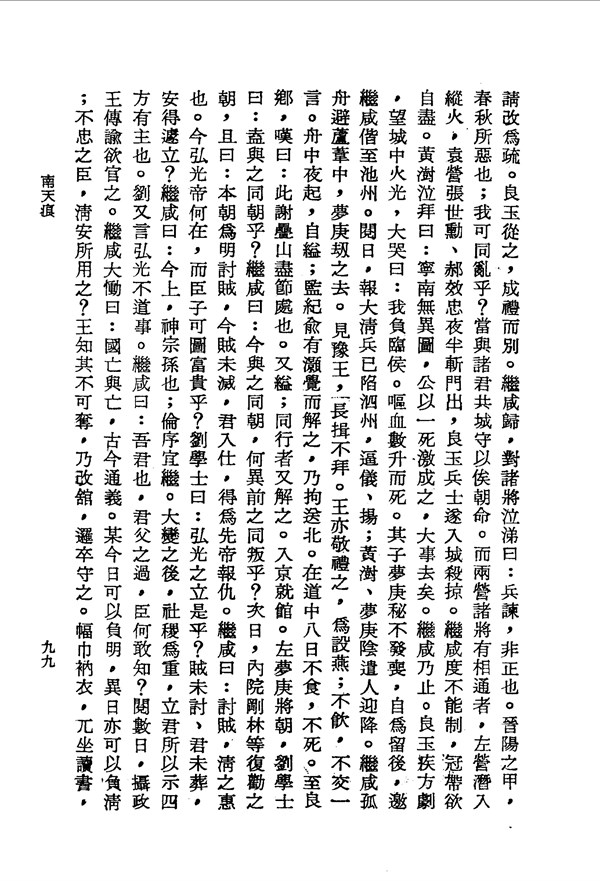 請改爲疏。良玉從之，成禮而別。繼咸歸，對諸將泣涕曰：兵諫，非正也。晉陽之甲，
春秋所惡也；我可同亂乎？當與諸君共城守以俟朝命。而兩營諸將有相通者，左營潛入
縱火，袁營張世勳、郝效忠夜半斬門出，良玉兵士遂入城殺掠。繼咸度不能制，冠帶欲
自盡。黃澍泣拜曰：寧南無異圖，公以一死激成之，大事去矣。繼咸乃止。良玉疾方劇
，望城中火光，大哭曰：我負臨侯。嘔血數升而死。其子夢庚秘不發喪，自爲留後，邀
繼咸偕至池州。閱日，報大清兵已陷泗州，逼儀、揚；黃澍、夢庚陰遣人迎降。繼咸孤
舟避蘆葦中，夢庚刼之去。見豫王，一長揖不拜。王亦敬禮之，爲設燕；不飲，不交一
言。舟中夜起，自縊；監紀兪有灝覺而解之，乃拘送北。在道中八日不食，不死。至良
鄉，嘆曰：此謝疊山盡節處也。又縊；同行者又解之。入京就館。左夢庚將朝，劉學士
曰：盍與之同朝乎？繼咸曰：今與之同朝，何異前之同叛乎？次日，內院剛林等復勸之
朝，且曰：本朝爲明討賊，今賊未滅，君入仕，得爲先帝報仇。繼咸曰：討賊，清之惠
也。今弘光帝何在，而臣子可圖富貴乎？劉學士曰：弘光之立是乎？賊未討、君未葬，
安得遽立？繼咸曰：今上，神宗孫也；倫序宜繼。大變之後，社稷爲重，立君所以示四
方有主也。劉又言弘光不道事。繼咸曰：吾君也，君父之過，臣何敢知？閱數日，攝政
王傳諭欲官之。繼咸大慟曰：國亡與亡，古今通義。某今日可以負明，異日亦可以負清
；不忠之臣，清安所用之？王知其不可奪，乃改舘，邏卒守之。幅巾衲衣，兀坐讀書，
南天痕
九九